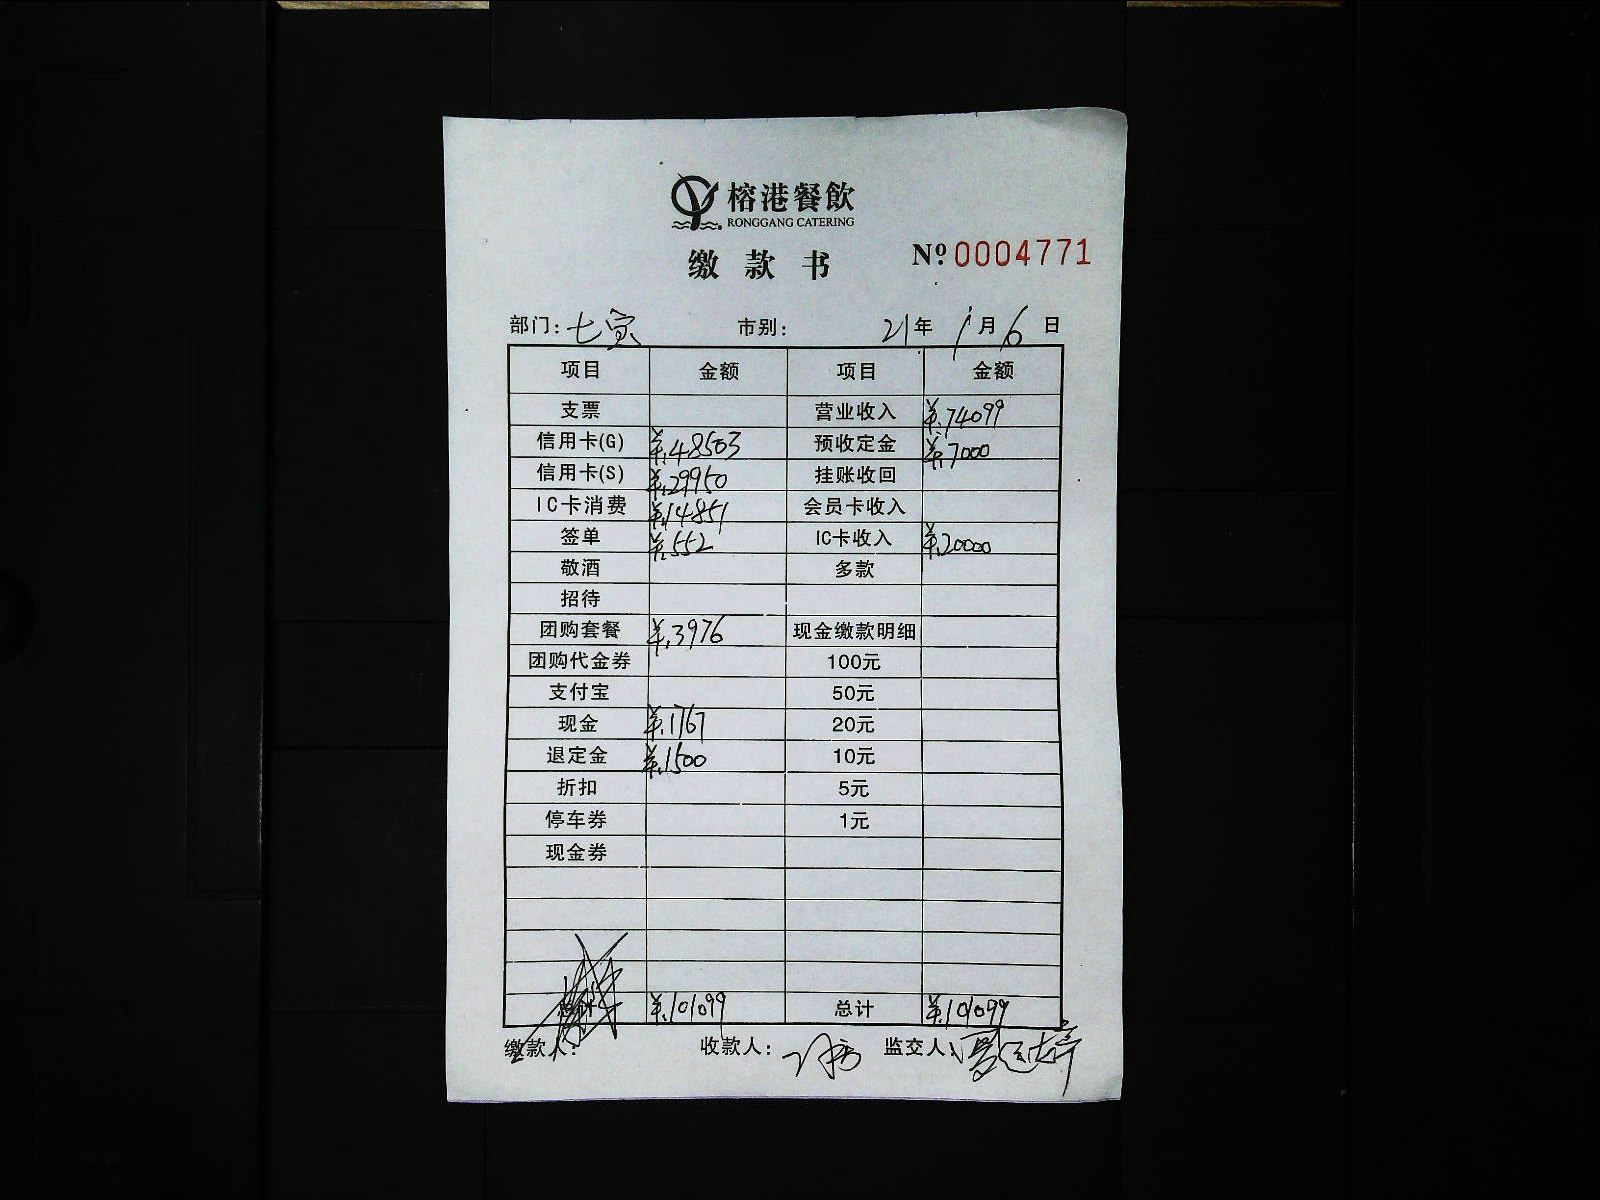 榕港餐飲
RONGGANG CATERING
缴款书
№ 0004771
部门: 七宝 市别: 21年 1月 6日
项目 金额 项目 金额
支票 营业收入 ¥.74099
信用卡(G) ¥.48503 预收定金 ¥.7000
信用卡(S) ¥.29950 挂账收回
IC卡消费 ¥.14851 会员卡收入
签单 ¥.552 IC卡收入 ¥.20000
敬酒 多款
招待
团购套餐 ¥.3976 现金缴款明细
团购代金券 100元
支付宝 50元
现金 ¥.1767 20元
退定金 ¥.1500 10元
折扣 5元
停车券 1元
现金券
总计 ¥.101099 总计 ¥.101099
缴款人: 收款人: 监交人: